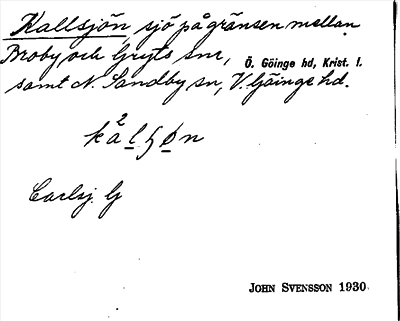 Kallsjön sjö på gränsen mellan
Broby och Gryts snr, Ö. Göinge hd, Krist. l.
samt N. Sandby sn, V. Göinge hd.
Carlsj. G
JOHN SVENSSON 1930